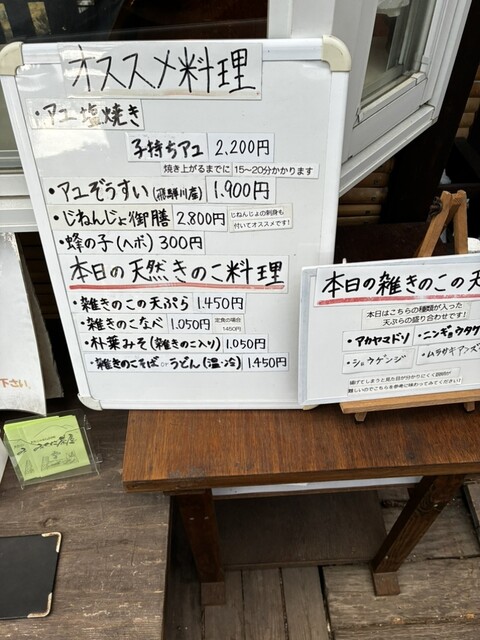 オススメ料理
・アユ塩焼き
子持ちアユ 2,200円
焼き上がるまでに 15〜20分かかります
・アユぞうすい(飛騨川産) 1,900円
・じねんじょ御膳 2,800円 じねんじょの刺身も
付いてオススメです!
・蜂の子(ヘボ) 300円
本日の天然きのこ料理
・雑きのこの天ぷら 1,450円
・雑きのこなべ 1,050円 定食の場合
1450円
・朴葉みそ(雑きのこ入り) 1,050円
・雑きのこそば or うどん(温・冷) 1,450円
本日の雑きのこの天
本日はこちらの種類が入った
天ぷらの盛り合わせです!
・アカヤマドリ ・ニンギョウタケ
・ショウゲンジ ・ムラサキアブ
揚げてしまうと見た目が分かりにくく説明が
難しいのでこちらを参考に味わってみてください!
下さい